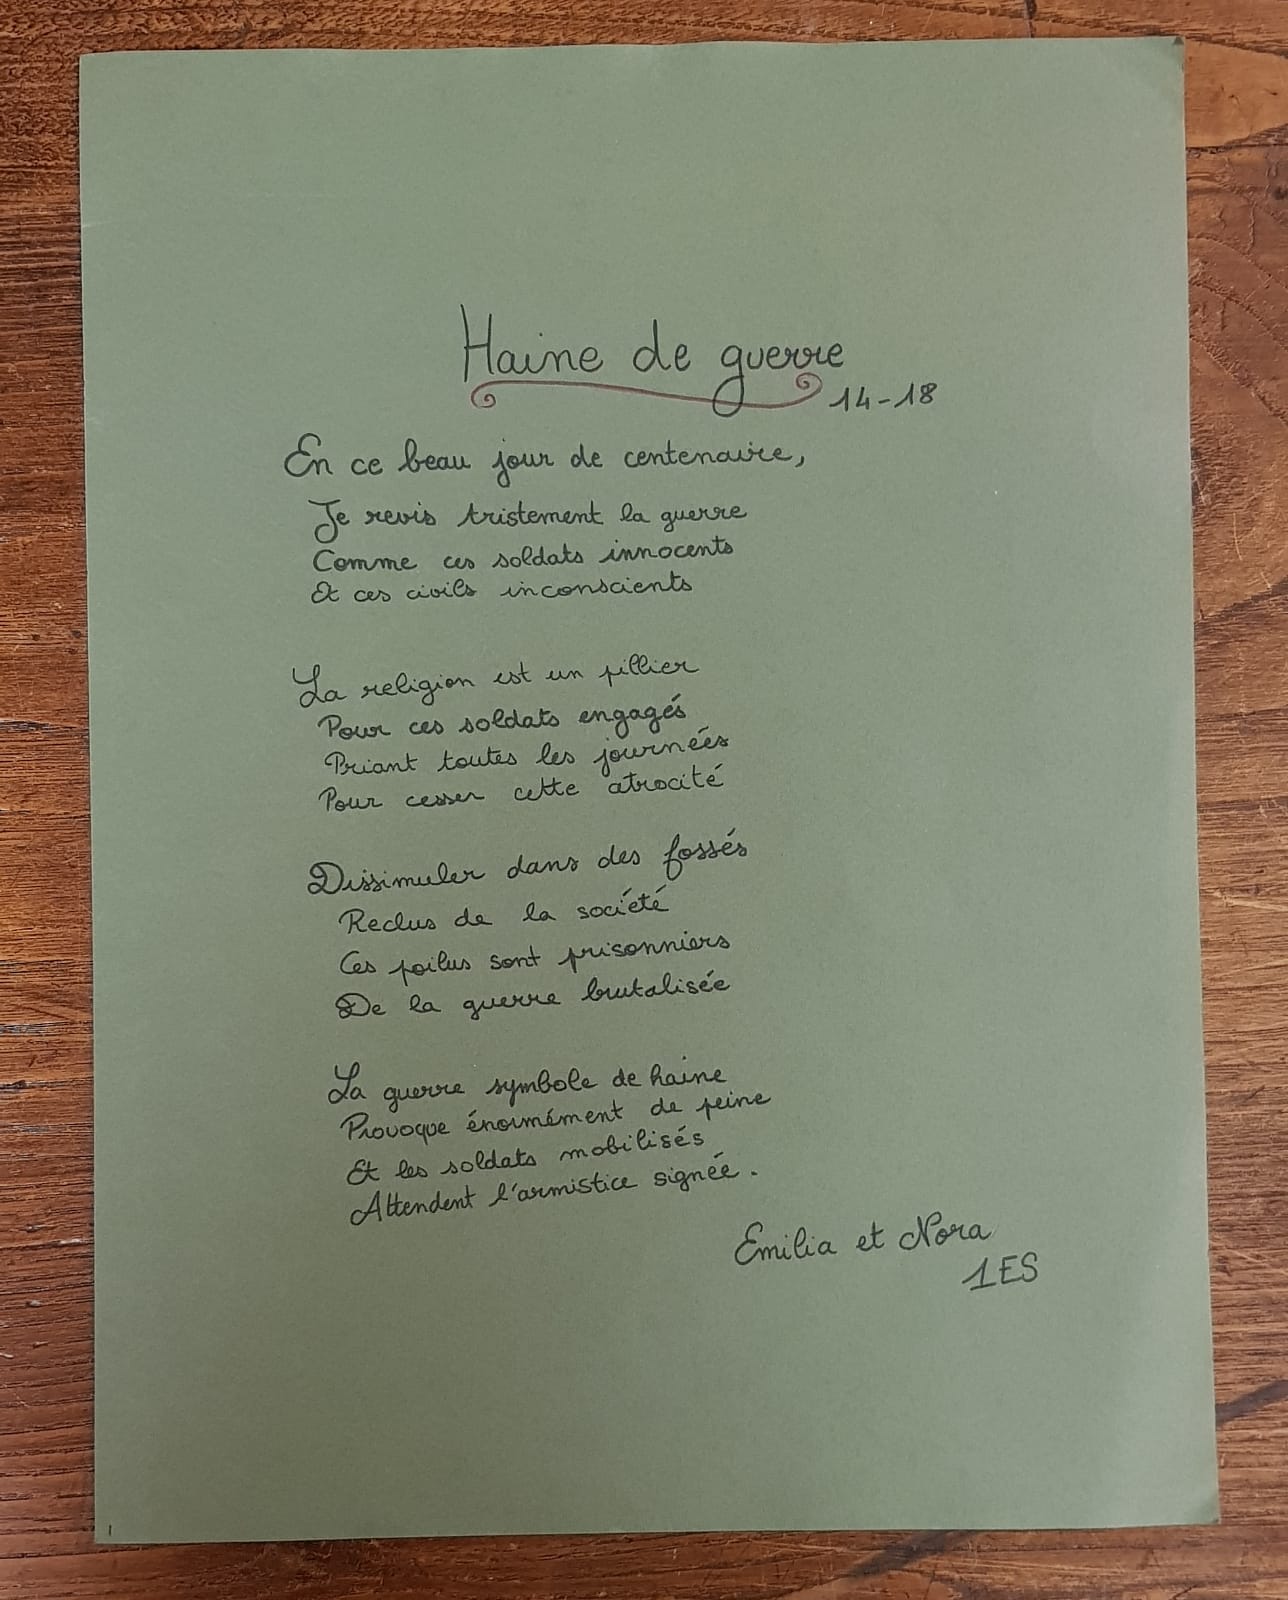 Haine de guerre
14-18
En ce beau jour de centenaire,
Je revis tristement la guerre
Comme ces soldats innocents
Et ces civils inconscients
La religion est un pillier
Pour ces soldats engagés
Priant toutes les journées
Pour cesser cette atrocité
Dissimuler dans des fossés
Reclus de la société
Ces poilus sont prisonniers
De la guerre brutalisée
La guerre symbole de haine
Provoque énormément de peine
Et les soldats mobilisés
Attendent l'armistice signée.
Emilia et Nora
1ES